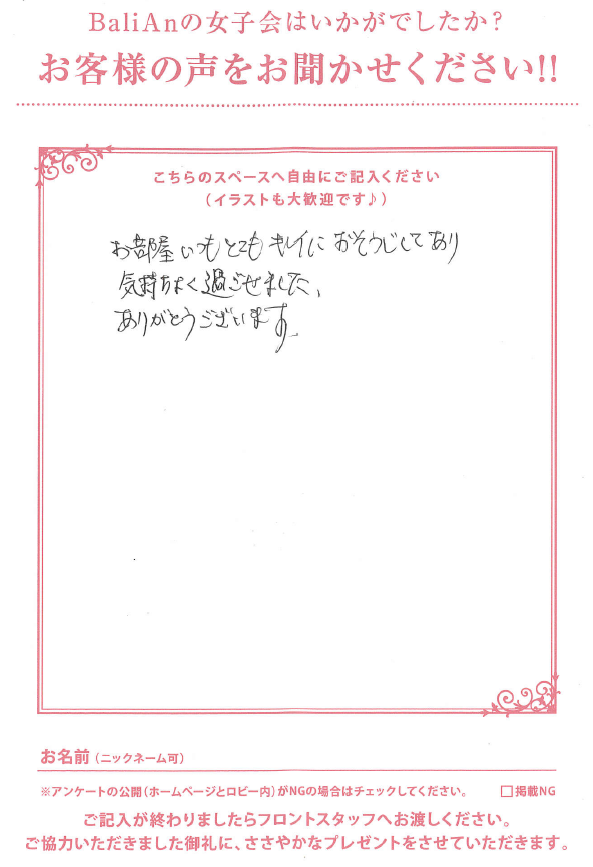 BaliAnの女子会はいかがでしたか?
お客様の声をお聞かせください!!
こちらのスペースへ自由にご記入ください
(イラストも大歓迎です♪)
お部屋いつもとてもキレイにおそうじしてあり
気持ちよく過ごせました、
ありがとうございます
お名前(ニックネーム可)
※アンケートの公開(ホームページとロビー内)がNGの場合はチェックしてください。 □掲載NG
ご記入が終わりましたらフロントスタッフへお渡しください。
ご協力いただきました御礼に、ささやかなプレゼントをさせていただきます。